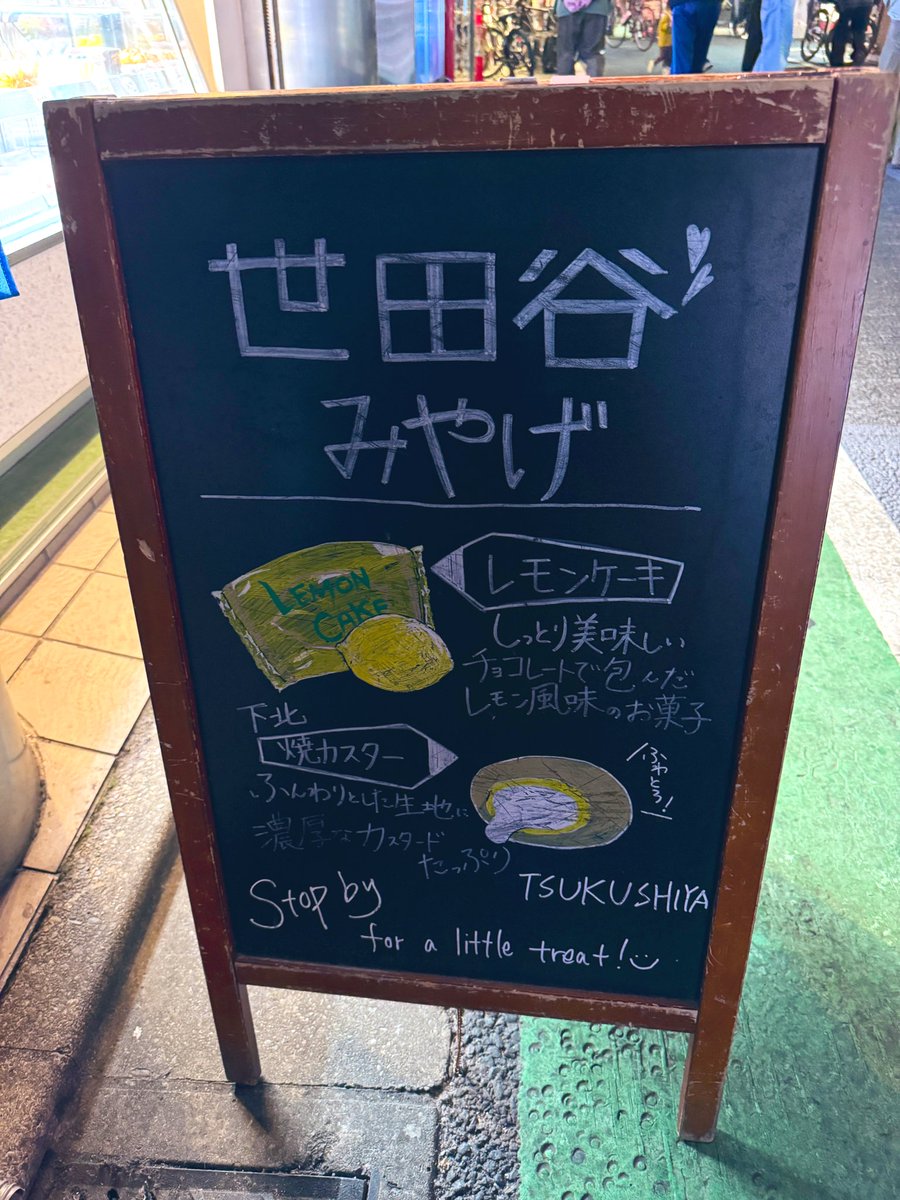 世田谷
みやげ
LEMON
CAKE
レモンケーキ
しっとり美味しい
チョコレートで包んだ
レモン風味のお菓子
下北
焼カスター
ふんわりとした生地に
濃厚なカスタード
たっぷり
ふわとろ!
TSUKUSHIYA
Stop by
for a little treat!